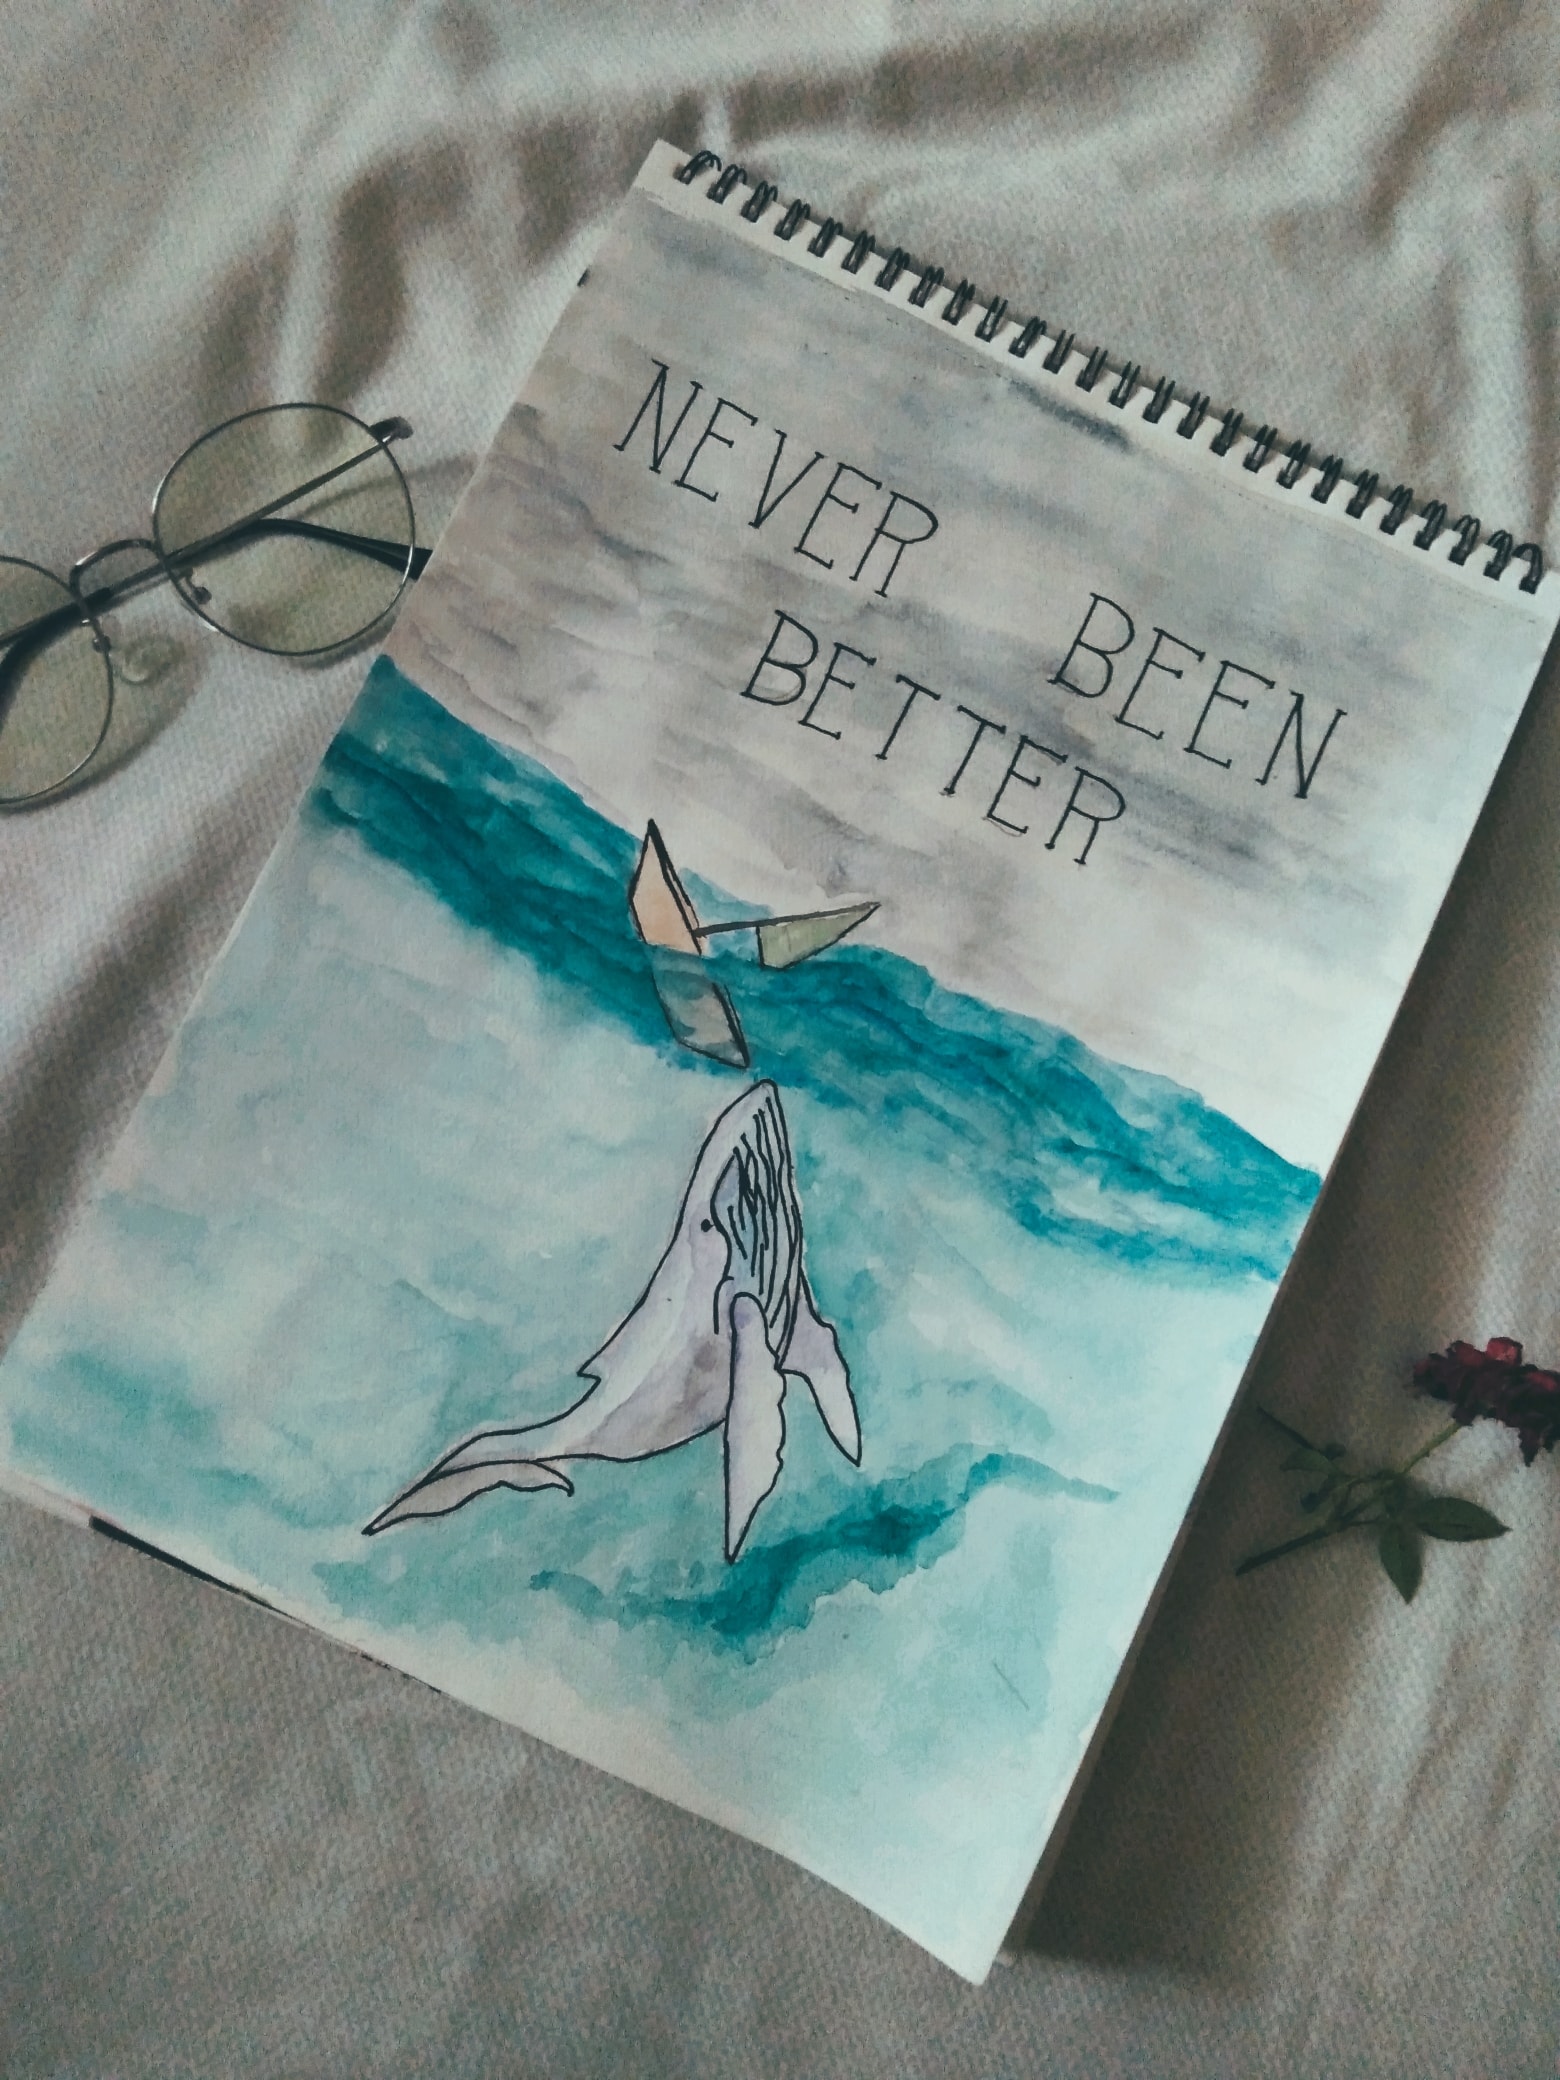 NEVER BEEN
BETTER